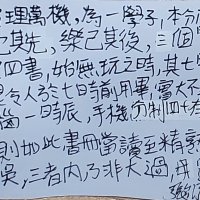 理萬機，為一學子，本分
己其先，樂己其後，三個
四書，始無玩之時，其七
令人於七日時前用畢，當大不
腦一時辰，手機分制四十
則如此書冊當讀至精熟
吳，三者內，乃非大過，毋